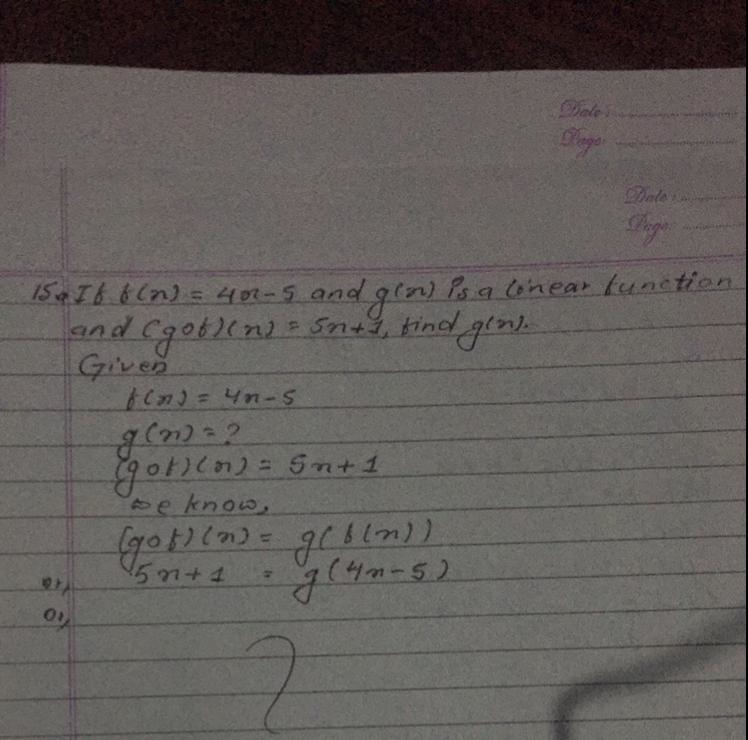 Date:
Page:
Date:
Page:
15. If f(x) = 4x-5 and g(x) is a linear function
and (gof)(x) = 5x+1, find g(x).
Given
f(x) = 4x-5
g(x) = ?
(gof)(x) = 5x+1
we know,
(gof)(x) = g(f(x))
or, 5x+1 = g(4x-5)
or,
?